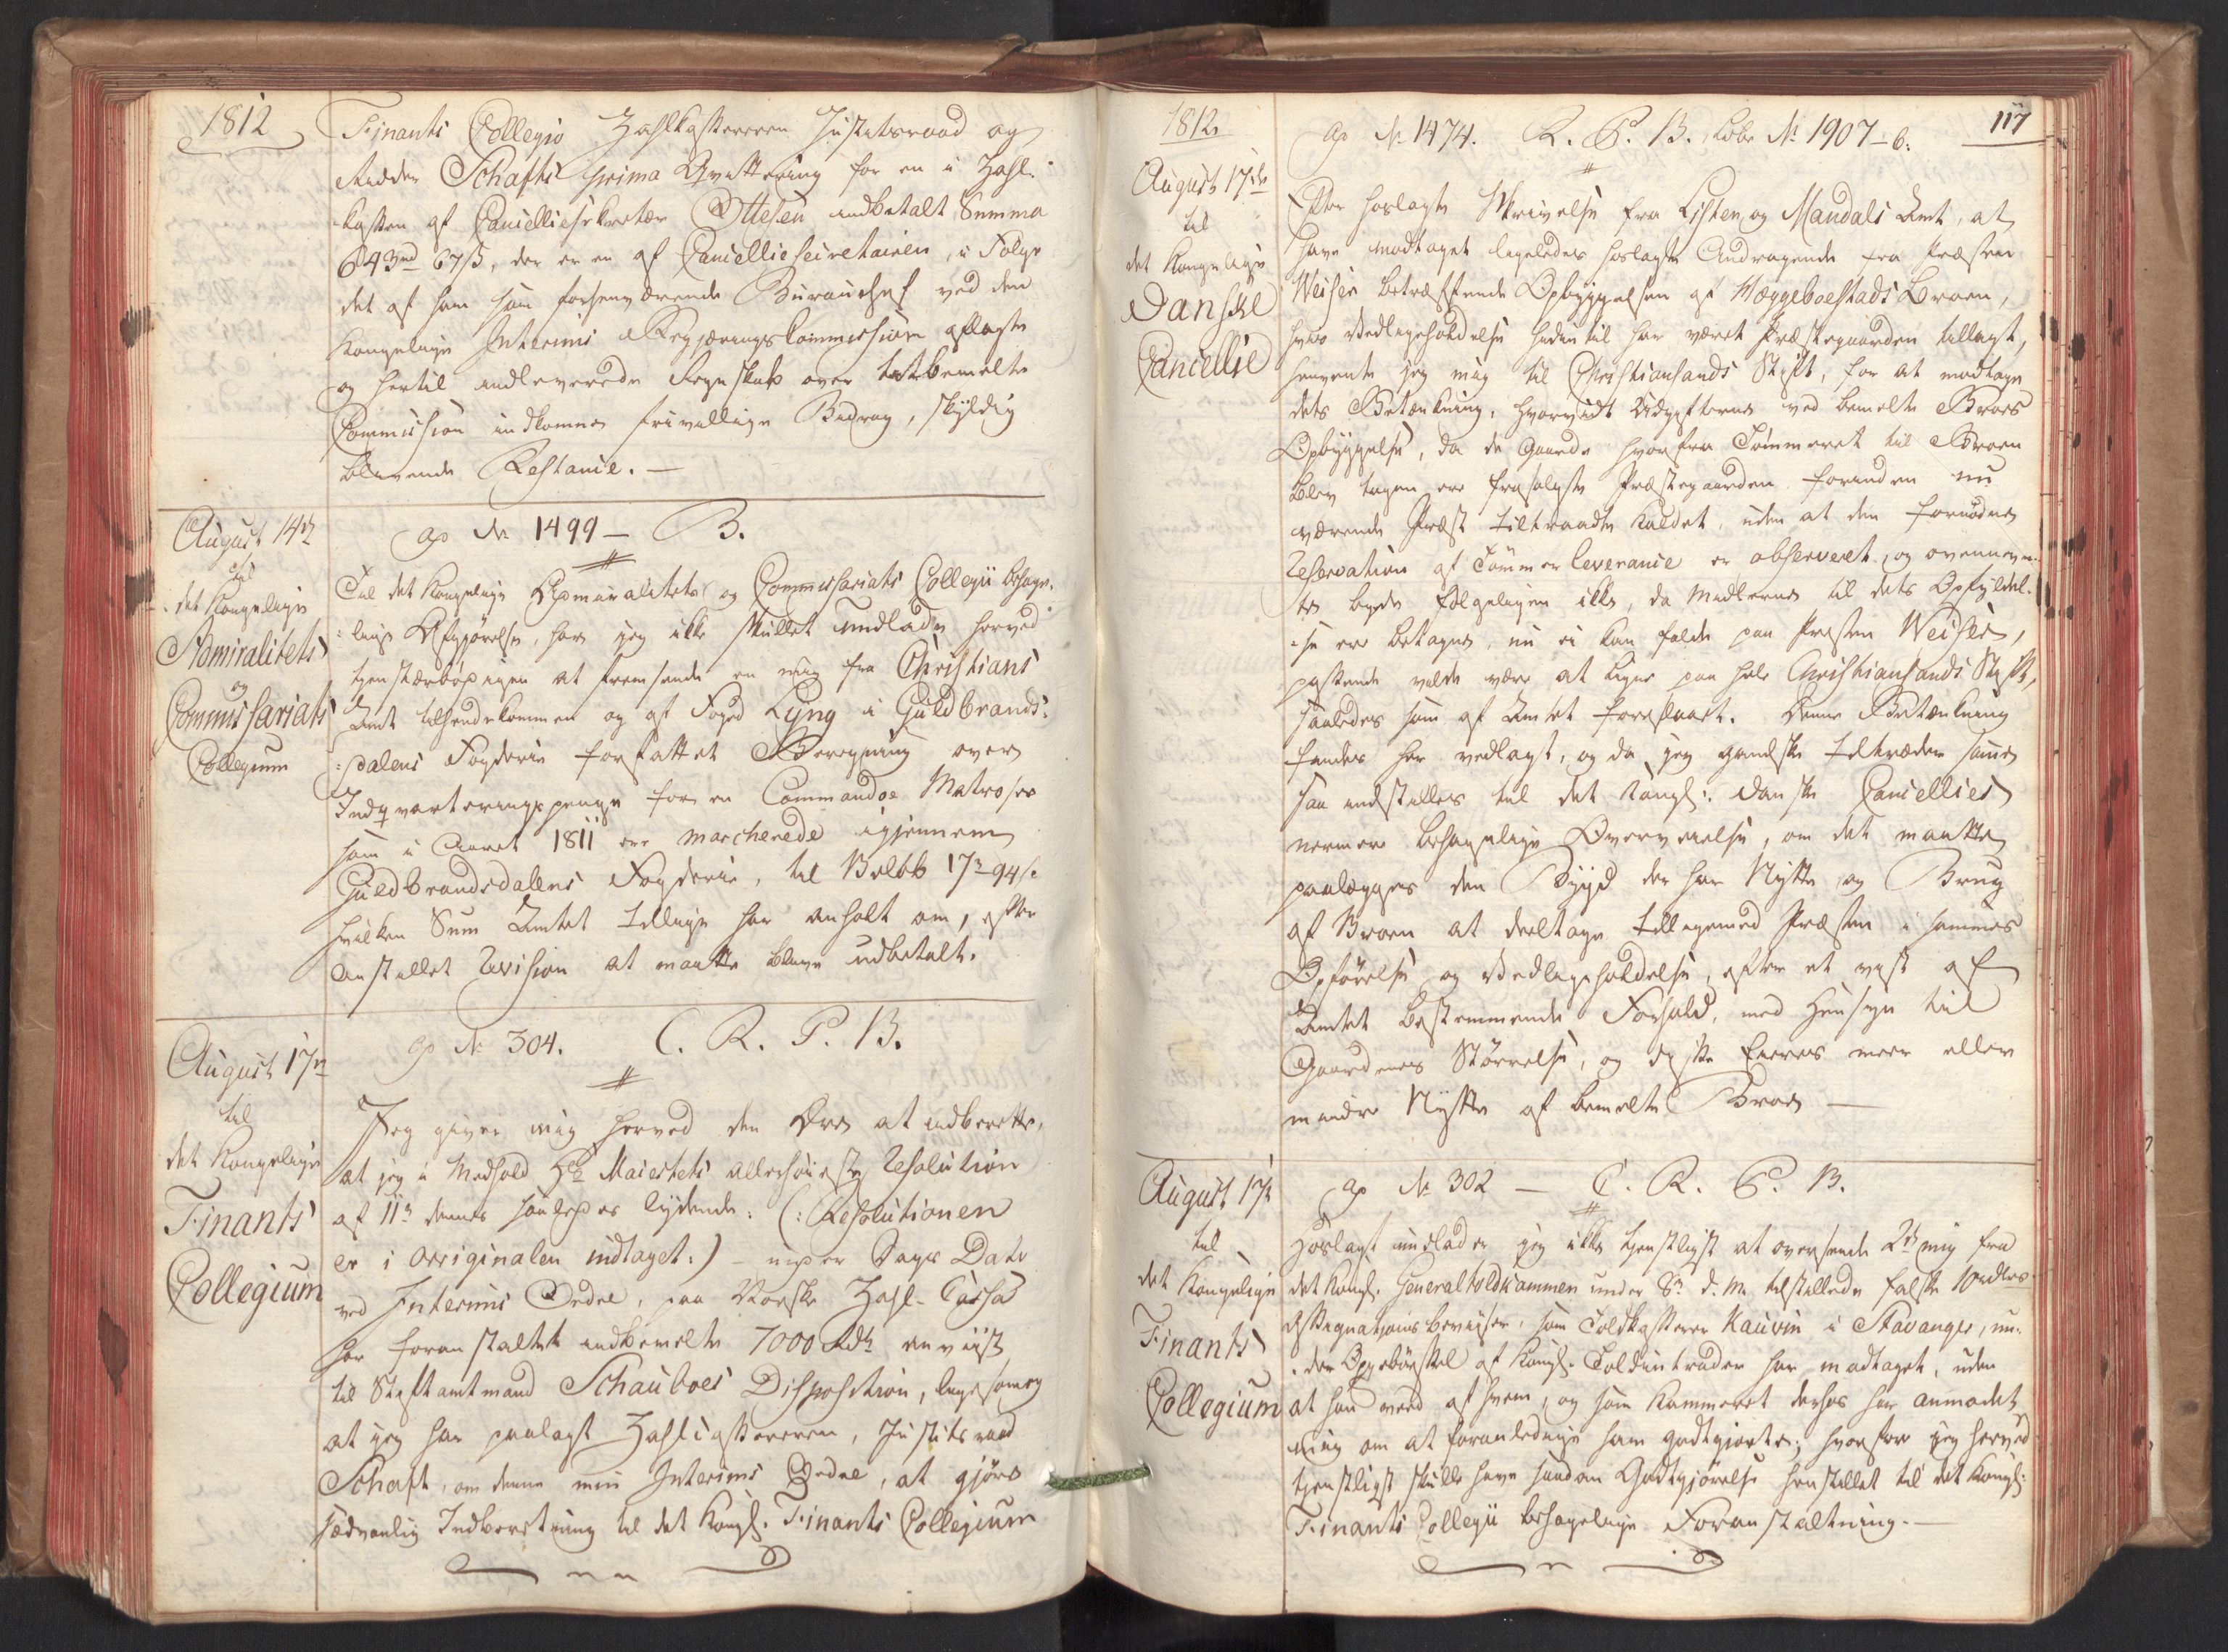 1812
Finants Collegio Zahlkassereren Justitsraad og
Ridder Schafts prima Qvittering for en i Zahl-
kassen af Cancelliesekretær Ottesen indbetalt Summa
643 rd 67 s, der er en af Cancelliesecretairen, i Følge
det af ham som forhenværende Burauchef ved den
Kongelige Interims Regjeringskommission aflagte
og hertil indleverede Regnskab over bemelte
Commission indkomne frivillige Bidrag, skyldig
blivende Restance. —
August 14de
til
det Kongelige
Admiralitets
og
Commissariats
Collegium
ap No 1499 — B.
Til det Kongelige Admiralitets og Commissariats Collegii behage-
lige Afgjørelse, har jeg ikke skullet undlade herved
tjenstærbødigen at fremsende en mig fra Christians
Amt tilsendekommen og af Foged Lyng i Guldbrands-
dalens Fogderie forfattet Beregning over
Indqvarteringspenge for en Commandoe Matroser
som i Aaret 1811 ere marcherede igjennem
Guldbrandsdalens Fogderie, til Beløb 17 rd 94 s.
hvilken Sum Amtet tillige har anholt om, efter
anstillet Revision at maatte blive udbetalt.
August 17de
til
det Kongelige
Finants
Collegium
ap No 304. C. R. P. B.
Jeg giver mig herved den Ære at indberette,
at jeg i Medhold Hs Maiestets allerhøieste Resolution
af 11te dennes saaledes lydende: (: Resolutionen
er i originalen indtaget :) — under Dags Dato
ved Interims Ordre, paa Norske Zahl-Cassa
har foranstaltet indbemelte 7000 Rdr anviist
til Stiftamtmand Schauboes Disposition, ligesom og
at jeg har paalagt Zahlcassereren, Justitsraad
Schaft, om denne min Interims Ordre, at gjøre
sædvanlig Indberetning til det Kongl. Finants Collegium
1812.
117
August 17de
til
det Kongelige
Danske
Cancellie
ap No 1474. R. P. B. Løbe No 1907-6.
Efter hoslagte Skrivelse fra Lister og Mandals Amt, at
have modtaget ligeledes hoslagte Andragende fra Præsten
Weiser betræffende Opbyggelsen af Hæggeboestads Broen,
hvis Vedligeholdelse hidentil har været Præstegaarden tillagt,
henvente jeg mig til Christiansands Stift, for at modtage
dets Betænkning, hvorvidt Udgifterne ved bemelte Broes
Opbyggelse, da de Gaarde hvorfra Tømmeret til Broen
blev tagen ere frasolgte Præstegaarden forinden nu
værende Præst tiltraadte Kaldet, uden at den fornødne
Reservation af Tømmer leverance er observeret, og ovennævn-
te byrde følgeligen ikke, da Midlerne til dets Opfyldel-
se ere betagne, nu ei kan falde paa Præsten Weiser,
passende vilde være at ligne paa hele Christiansands Stift,
saaledes som af Amtet foreslaaet. Denne Betænkning
findes her vedlagt, og da jeg gandske tiltræder samme
saa indstilles til det Kongl: Danske Cancellies
nærmere behagelige Overveielse, om det maatte
paalægges den Bygd der har Nytte og Brug
af Broen at deeltage tilligemed Præsten i sammes
Opførelse og Vedligeholdelse, efter et vist af
Amtet bestemmende Forhold, med Hensyn til
Gaardenes Størrelse, og disse Eieres meer eller
mindre Nytte af bemelte Broe —
August 17de
til
det Kongelige
Finants
Collegium
ap No 302 — C. R. P. B.
Hoslagt undlader jeg ikke tjenstligst at oversende 2de mig fra
det Kongl. Generaltoldkammer under 8de d. M. tilstillede falske 10 rdlrs
Assignationsbeviser, som Toldkasserer Kauvin i Stavanger, un-
der Oppebørsel af Kongl. Toldintrader har modtaget, uden
at han veed af hvem, og som Kammeret derhos har anmodet
mig om at foranledige ham godtgiorte; hvorfor jeg herved
tjenstligst skulle have saadan Godtgjørelse henstillet til det Kongl:
Finants Collegii behagelige Foranstaltning. —